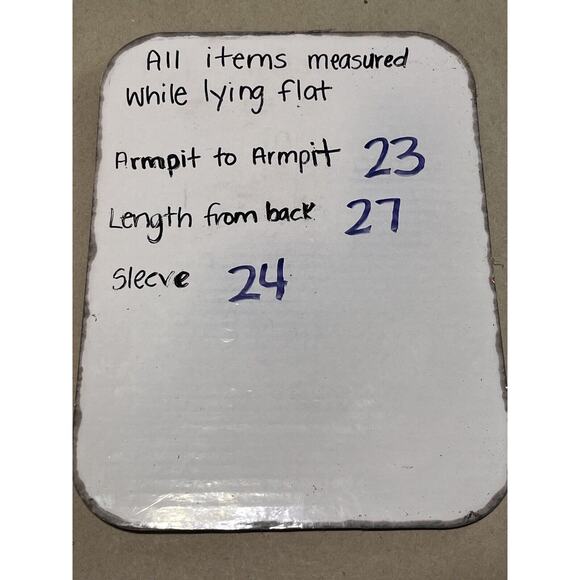 All items measured
while lying flat
Armpit to Armpit 23
Length from back 27
Sleeve 24